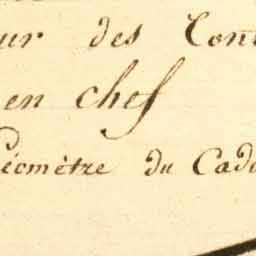 ur des Con
en chef
Géomètre du Cad